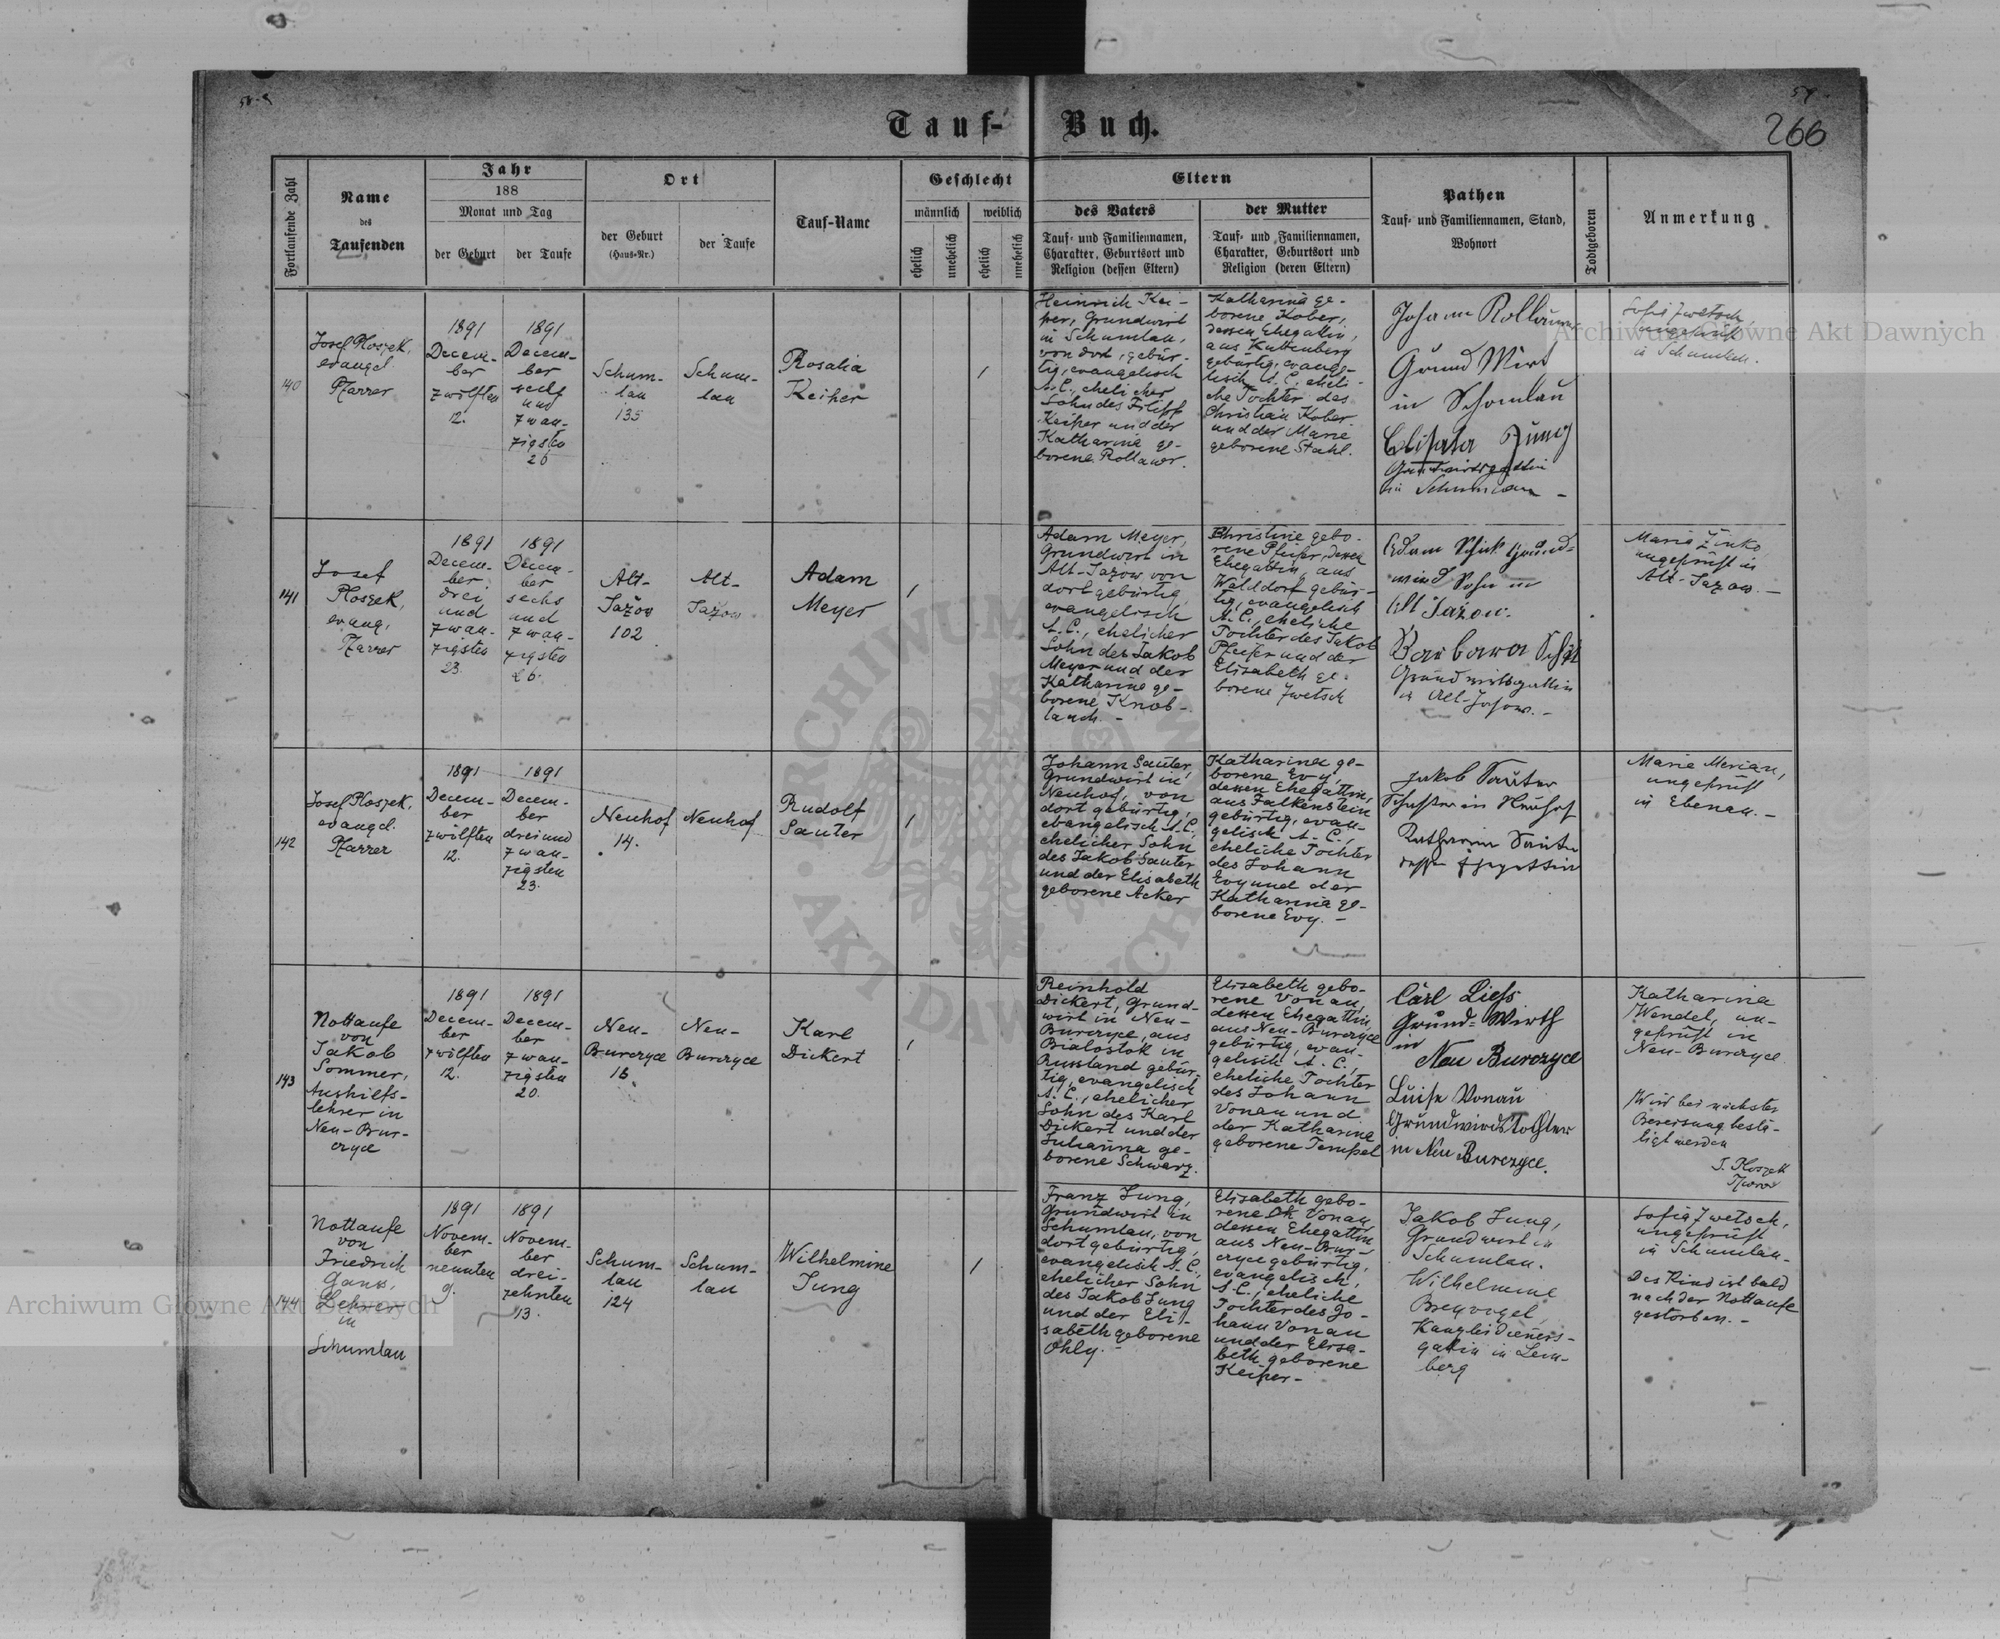 Tauf- Buch.
266
Fortlaufende Zahl
Name
des
Taufenden
Jahr
188
Monat und Tag
der Geburt
der Taufe
Ort
der Geburt
(Haus-Nr.)
der Taufe
Tauf-Name
Geschlecht
männlich
weiblich
ehelich
unehelich
ehelich
unehelich
Eltern
des Vaters
Tauf- und Familiennamen,
Charakter, Geburtsort und
Religion (dessen Eltern)
der Mutter
Tauf- und Familiennamen,
Charakter, Geburtsort und
Religion (deren Eltern)
Pathen
Tauf- und Familiennamen, Stand,
Wohnort
Todtgeboren
Anmerkung
140
Josef Ploszek,
evangel.
Pfarrer
1891
Decem-
ber
zwölften
12.
1891
Decem-
ber
sechs
und
zwan-
zigsten
26
Schum-
lau
135
Schum-
lau
Rosalia
Keiper
/
Heinrich Kei-
per, Grundwirt
in Schumlau,
von dort, gebür-
tig, evangelisch
A.C., ehelicher
Sohn des Filipp
Keiper und der
Katharina ge-
borene Rollauer.
Katharina ge-
borene Kober,
dessen Ehegattin,
aus Kuttenberg
gebürtig, evange-
lisch A.C., eheli-
che Tochter des
Christian Kober
und der Marie
geborene Stahl.
Johann Rollauer
Grund Wirt
in Schomlau
Elisata Jung
Grundwirtsgattin
in Schumlau -
Sofia Zwetsch,
ungeprüft
in Schumlau.
141
Josef
Ploszek,
evang.
Pfarrer
1891
Decem-
ber
drei
und
zwan-
zigsten
23.
1891
Decem-
ber
sechs
und
zwan-
zigsten
26.
Alt-
Jażow
102
Alt-
Jażow
Adam
Meyer
/
Adam Meyer,
Grundwirt in
Alt-Jazow von
dort gebürtig
evangelisch
A.C., ehelicher
Sohn des Jakob
Meyer und der
Katharine ge-
borene Knob-
lauch. -
Christine gebo-
rene Pfeifer, dessen
Ehegattin, aus
Walddorf gebür-
tig, evangelisch
A.C., eheliche
Tochter des Jakob
Pfeifer und der
Elisabeth ge-
borene Zwetsch
Adam Schick Grund-
wird Sohn in
Alt Jażow.
Barbara
Grundwirtsgattin
in Alt-Jazow. -
Maria Zinko,
ungeprüft in
Alt-Jazow. -
142
Josef Ploszek,
evangel.
Pfarrer
1891
Decem-
ber
zwölften
12.
1891
Decem-
ber
drei und
zwan-
zigsten
23.
Neuhof
14.
Neuhof
Rudolf
Sauter
/
Johann Sauter
Grundwirt in
Neuhof, von
dort gebürtig,
evangelisch A.C.,
ehelicher Sohn
des Jakob Sauter
und der Elisabeth
geborene Acker
Katharina ge-
borene Evy,
dessen Ehegattin,
aus Falkenstein
gebürtig, evan-
gelisch A.C.,
eheliche Tochter
des Johann
Evy und der
Katharina ge-
borene Evy. -
Jakob Sauter
in Neuhof
Katharina Sauter
dessen Ehegattin
Marie Merian,
ungeprüft
in Ebenau. -
143
Nottaufe
von
Jakob
Sommer,
Aushilfs-
lehrer in
Neu-Bur-
czyce
1891
Decem-
ber
zwölften
12.
1891
Decem-
ber
zwan-
zigsten
20.
Neu-
Burczyce
16
Neu-
Burczyce
Karl
Dickert
/
Reinhold
Dickert, Grund-
wirt in Neu-
Burczyce, aus
Bialostok in
Russland gebür-
tig, evangelisch
A.C., ehelicher
Sohn des Karl
Dickert und der
Juhanna ge-
borene Schwarz.
Elisabeth gebo-
rene Vonau,
dessen Ehegattin
aus Neu-Burczyce
gebürtig, evan-
gelisch A.C.,
eheliche Tochter
des Johann
Vonau und
der Katharina
geborene Tempel
Carl Liess
Grund-Wirth
in
Neu Burczyce
Luise Vonau
Grundwirdstochter
in Neu Burczyce.
Katharina
Wendel, un-
geprüft in
Neu-Burczyce
Wird bei nächster
Bereisung bestä-
tigt werden
J. Ploszek
Pfarrer
144
Nottaufe
von
Friedrich
Gans,
Lehrer
in
Schumlau
1891
Novem-
ber
neunten
9.
1891
Novem-
ber
drei-
zehnten
13.
Schum-
lau
124
Schum-
lau
Wilhelmine
Jung
/
Franz Jung,
Grundwirt in
Schumlau, von
dort gebürtig,
evangelisch A.C.,
ehelicher Sohn
des Jakob Jung
und der Eli-
sabeth geborene
Ohly. -
Elisabeth gebo-
rene Vonau
dessen Ehegattin
aus Neu-Bur-
czyce gebürtig,
evangelisch,
A.C., eheliche
Tochter des Jo-
hann Vonau
und der Elisa-
beth geborene
Keiper -
Jakob Jung,
Grundwirt in
Schumlau.
Wilhelmine
Breyvogel,
Kanzleidieners-
gattin in Lem-
berg
Sofia Zwetsch,
ungeprüft
in Schumlau.
Das Kind ist bald
nach der Nottaufe
gestorben. -
Archiwum Główne Akt Dawnych
Archiwum Główne Akt Dawnych
ARCHIWUM
AKT DAWNYCH